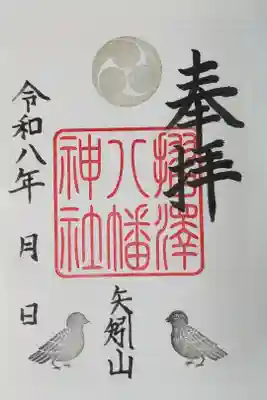 奉拝
摺澤
八幡
神社
矢矧山
令和八年 月 日